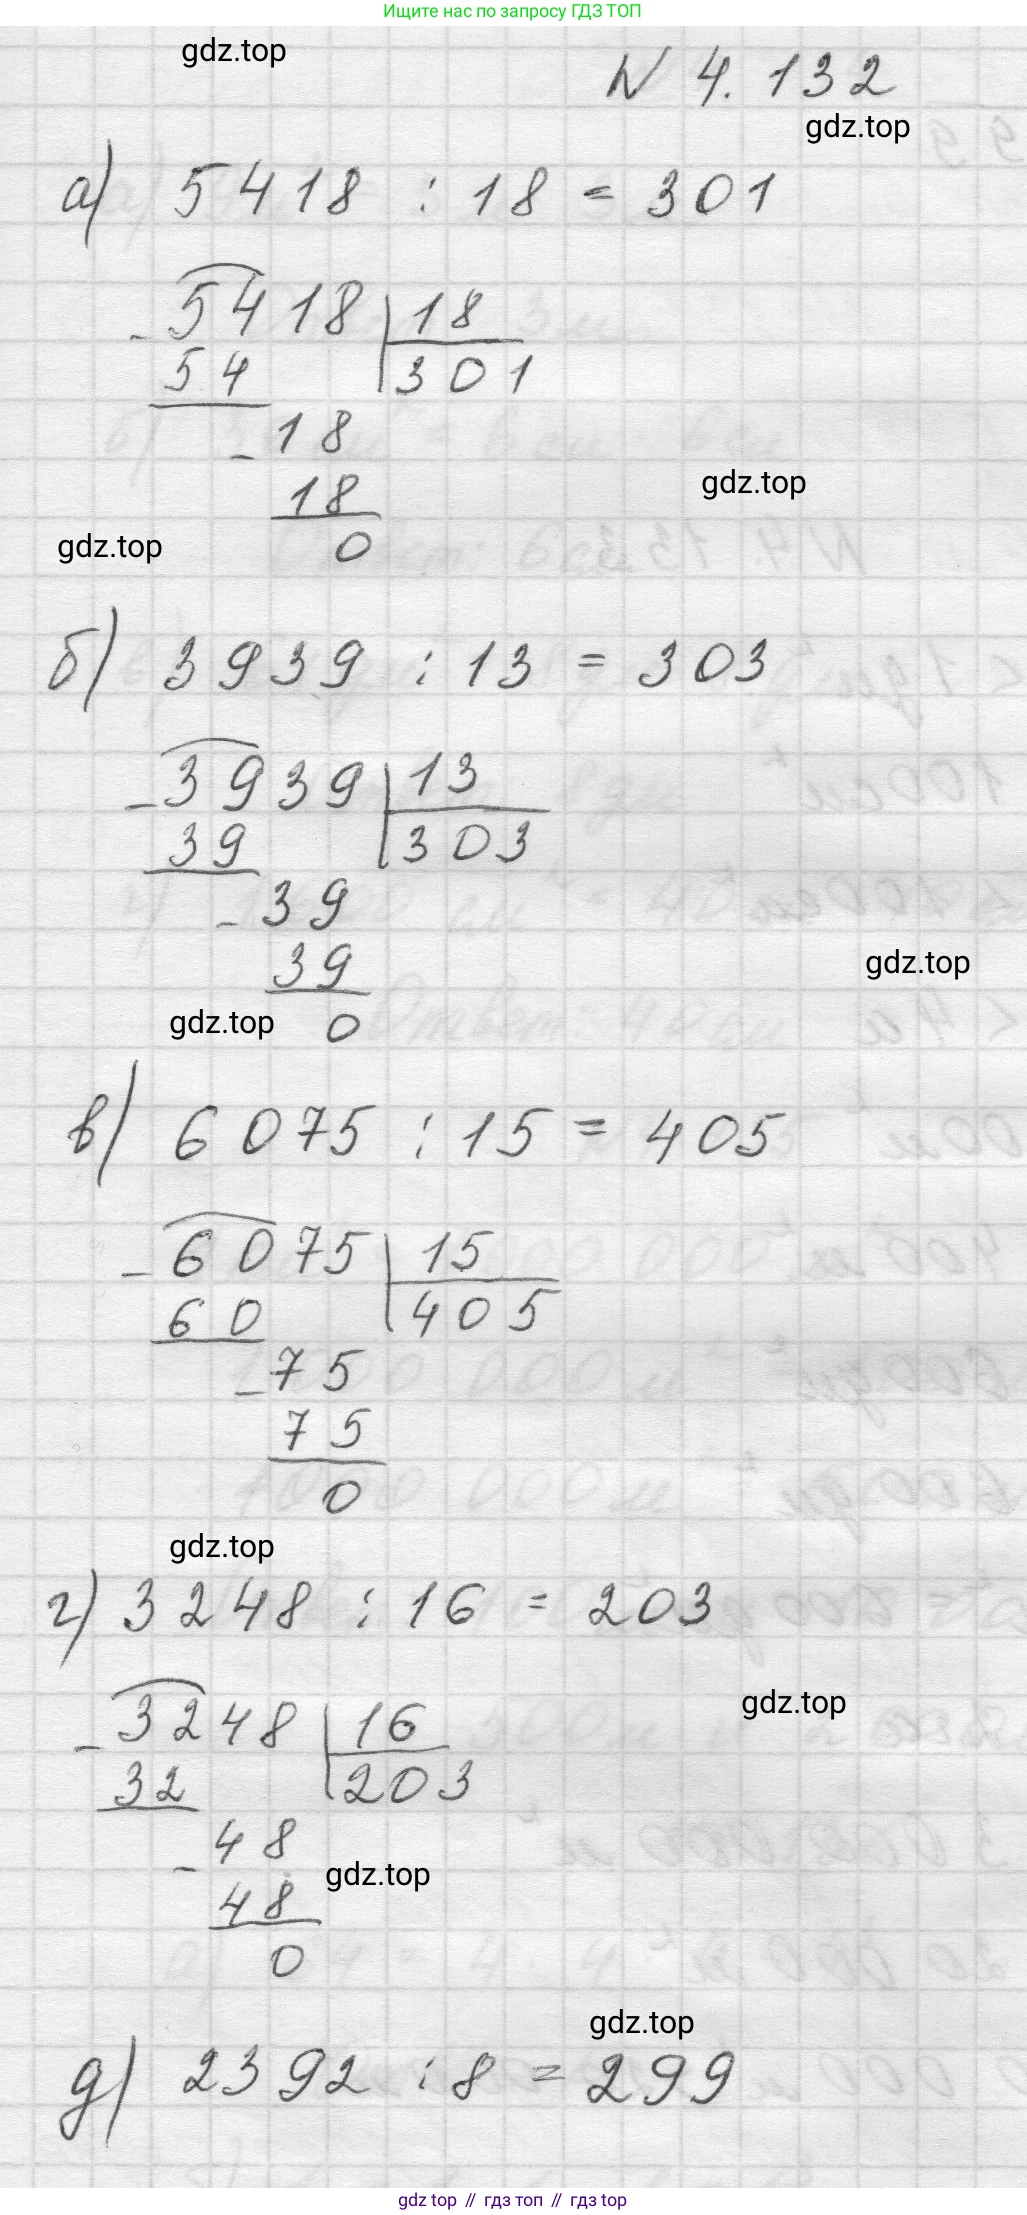 Ищите нас по запросу ГДЗ ТОП
gdz.top
N 4.132
gdz.top
а) 5418 : 18 = 301
5418 18
- 54 301
- 18
18
gdz.top
0
gdz.top
б) 3939 : 13 = 303
- 3939 13
39 303
- 39
39
gdz.top
0
gdz.top
в) 6075 : 15 = 405
- 6075 15
60 405
- 75
75
0
gdz.top
г) 3248 : 16 = 203
gdz.top
- 3248 16
32 203
- 48
gdz.top
48
0
gdz.top
д) 2392 : 8 = 299
gdz top // гдз топ // gdz top